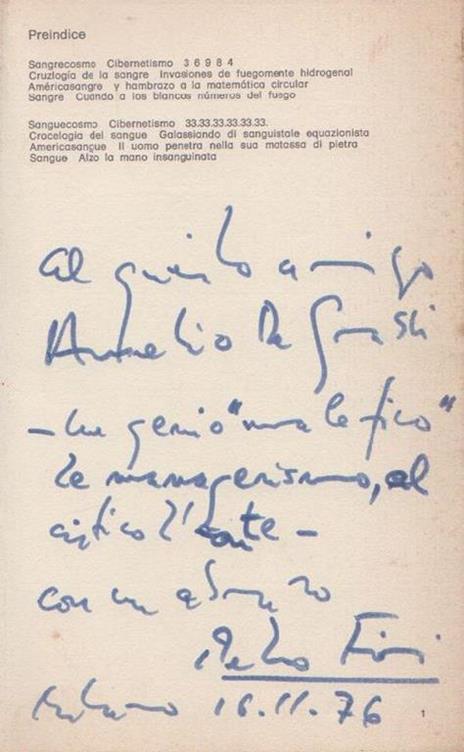 Preindice
Sangrecosmo Cibernetismo 3 6 9 8 4
Cruzlogía de la sangre Invasiones de fuegomente hidrogenal
Américasangre y hambrazo a la matemática circular
Sangre Cuando a los blancos números del fuego
Sanguecosmo Cibernetismo 33.33.33.33.33.33.
Crocelogia del sangue Galassiando di sanguistole equazionista
Americasangue Il uomo penetra nella sua matassa di pietra
Sangue Alzo la mano insanguinata
al amigo
Aurelio De Grassi
– genio "malefico"
managerismo, al
–
con un abrazo
Milano 16.11.76
1